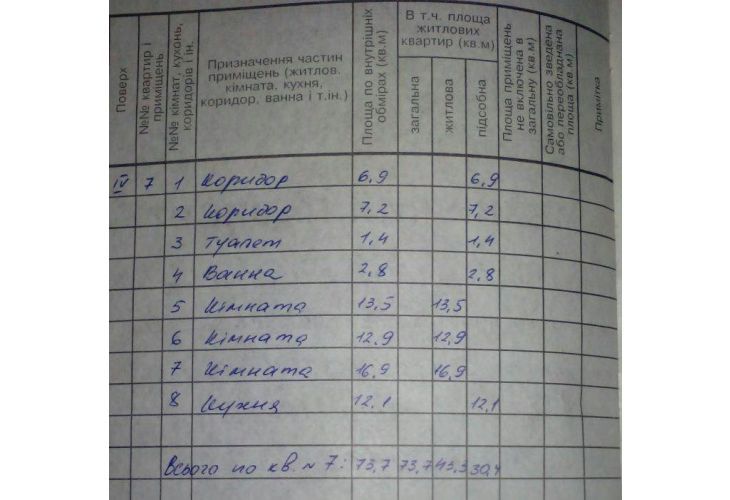 Поверх
№№ квартир і приміщень
№№ кімнат, кухонь, коридорів і ін.
Призначення частин приміщень (житлов. кімната, кухня, коридор, ванна і т.ін.)
Площа по внутрішніх обмірах (кв.м)
В т.ч. площа житлових квартир (кв.м)
загальна
житлова
підсобна
Площа приміщень не включена в загальну (кв.м)
Самовільно зведена або переобладнана площа (кв.м)
Примітка
IV 7 1 Коридор 6,9 6,9
2 Коридор 7,2 7,2
3 Туалет 1,4 1,4
4 Ванна 2,8 2,8
5 Кімната 13,5 13,5
6 Кімната 12,9 12,9
7 Кімната 16,9 16,9
8 Кухня 12,1 12,1
Всього по кв. № 7: 73,7 73,7 43,3 30,4